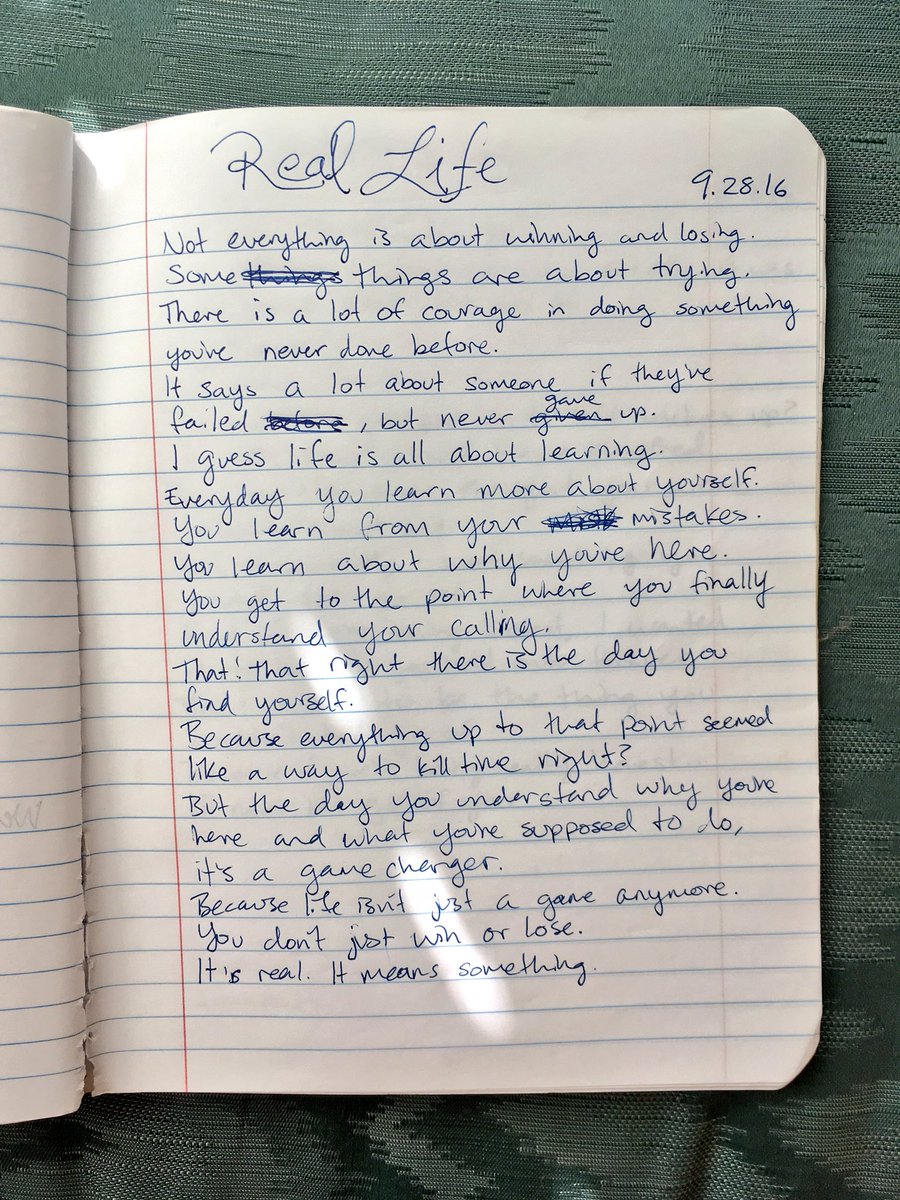 Real Life
9.28.16
Not everything is about winning and losing.
Some things things are about trying.
There is a lot of courage in doing something
you've never done before.
It says a lot about someone if they've
failed before, but never given gave up.
I guess life is all about learning.
Everyday you learn more about yourself.
You learn from your mistakes.
You learn about why you're here.
You get to the point where you finally
understand your calling.
That! that right there is the day you
find yourself.
Because everything up to that point seemed
like a way to kill time right?
But the day you understand why you're
here and what you're supposed to do,
it's a game changer.
Because life isn't just a game anymore.
You don't just win or lose.
It's real. It means something.